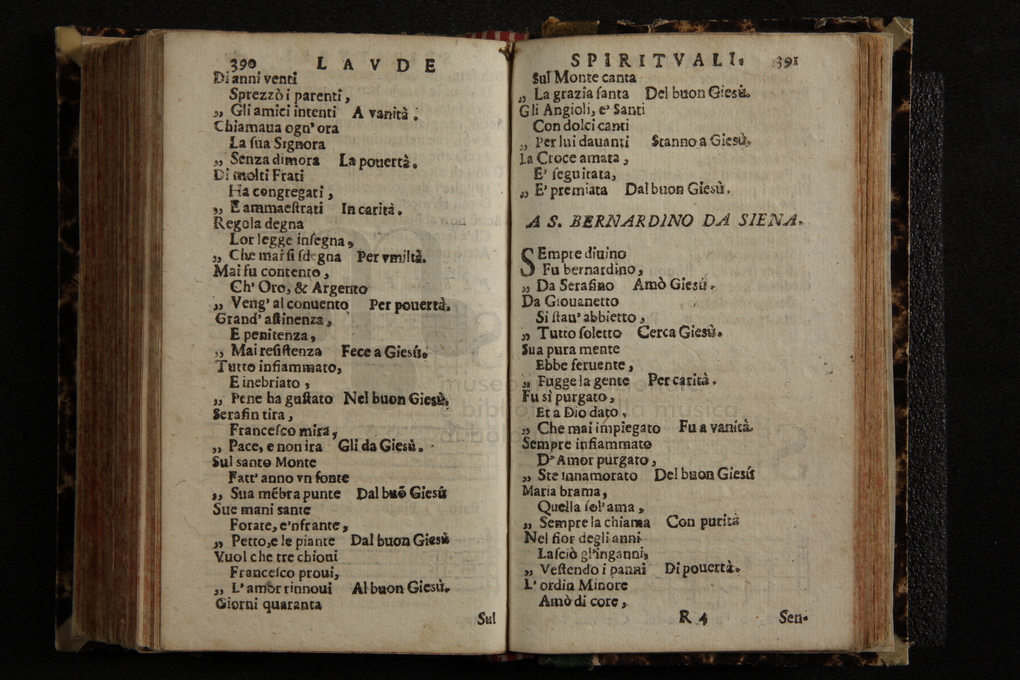 390 LAVDE
Di anni venti
Sprezzò i parenti,
„ Gli amici intenti A vanità.
Chiamaua ogn' ora
La sua Signora
„ Senza dimora La pouertà.
Di molti Frati
Ha congregati,
„ E ammaestrati In carità.
Regola degna
Lor legge insegna,
„ Che mai si sdegna Per vmiltà.
Mai fu contento,
Ch' Oro, & Argento
„ Veng' al conuento Per pouertà.
Grand' astinenza,
E penitenza,
„ Mai resistenza Fece a Giesù.
Tutto infiammato,
E inebriato,
„ Pene ha gustato Nel buon Giesù,
Serafin tira,
Francesco mira,
„ Pace, e non ira Gli da Giesù.
Sul santo Monte
Fatt' anno vn fonte
„ Sua mẽbra punte Dal buõ Giesù
Sue mani sante
Forate, e'nfrante,
„ Petto, e le piante Dal buon Giesù
Vuol che tre chioui
Francesco proui,
„ L' amor rinnoui Al buon Giesù.
Giorni quaranta
Sul
SPIRITVALI. 391
Sul Monte canta
„ La grazia santa Del buon Giesù.
Gli Angioli, e' Santi
Con dolci canti
„ Per lui dauanti Stanno a Giesù.
La Croce amata,
E' seguitata,
„ E' premiata Dal buon Giesù.
A S. BERNARDINO DA SIENA.
SEmpre diuino
Fu bernardino,
„ Da Serafino Amò Giesù.
Da Giouanetto
Si stau' abbietto,
„ Tutto soletto Cerca Giesù.
Sua pura mente
Ebbe feruente,
„ Fugge la gente Per carità.
Fu sì purgato,
Et a Dio dato,
„ Che mai impiegato Fu a vanità.
Sempre infiammato
D' Amor purgato,
„ Ste innamorato Del buon Giesù
Maria brama,
Quella sol' ama,
„ Sempre la chiama Con purità
Nel fior degli anni
Lasciò gl'inganni,
„ Vestendo i panni Di pouertà.
L' ordin Minore
Amò di core,
R 4 Sen-